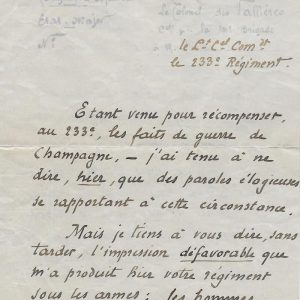 Etat-Major
N°
Le Colonel des Vallières
la 101e brigade
le Lt Cel Comdt
le 233e Régiment.
Etant venu pour récompenser,
au 233e, les faits de guerre de
Champagne, — j'ai tenu à ne
dire, hier, que des paroles élogieuses
se rapportant à cette circonstance.
Mais je tiens à vous dire, sans
tarder, l'impression défavorable que
m'a produit hier votre régiment
sous les armes : les hommes